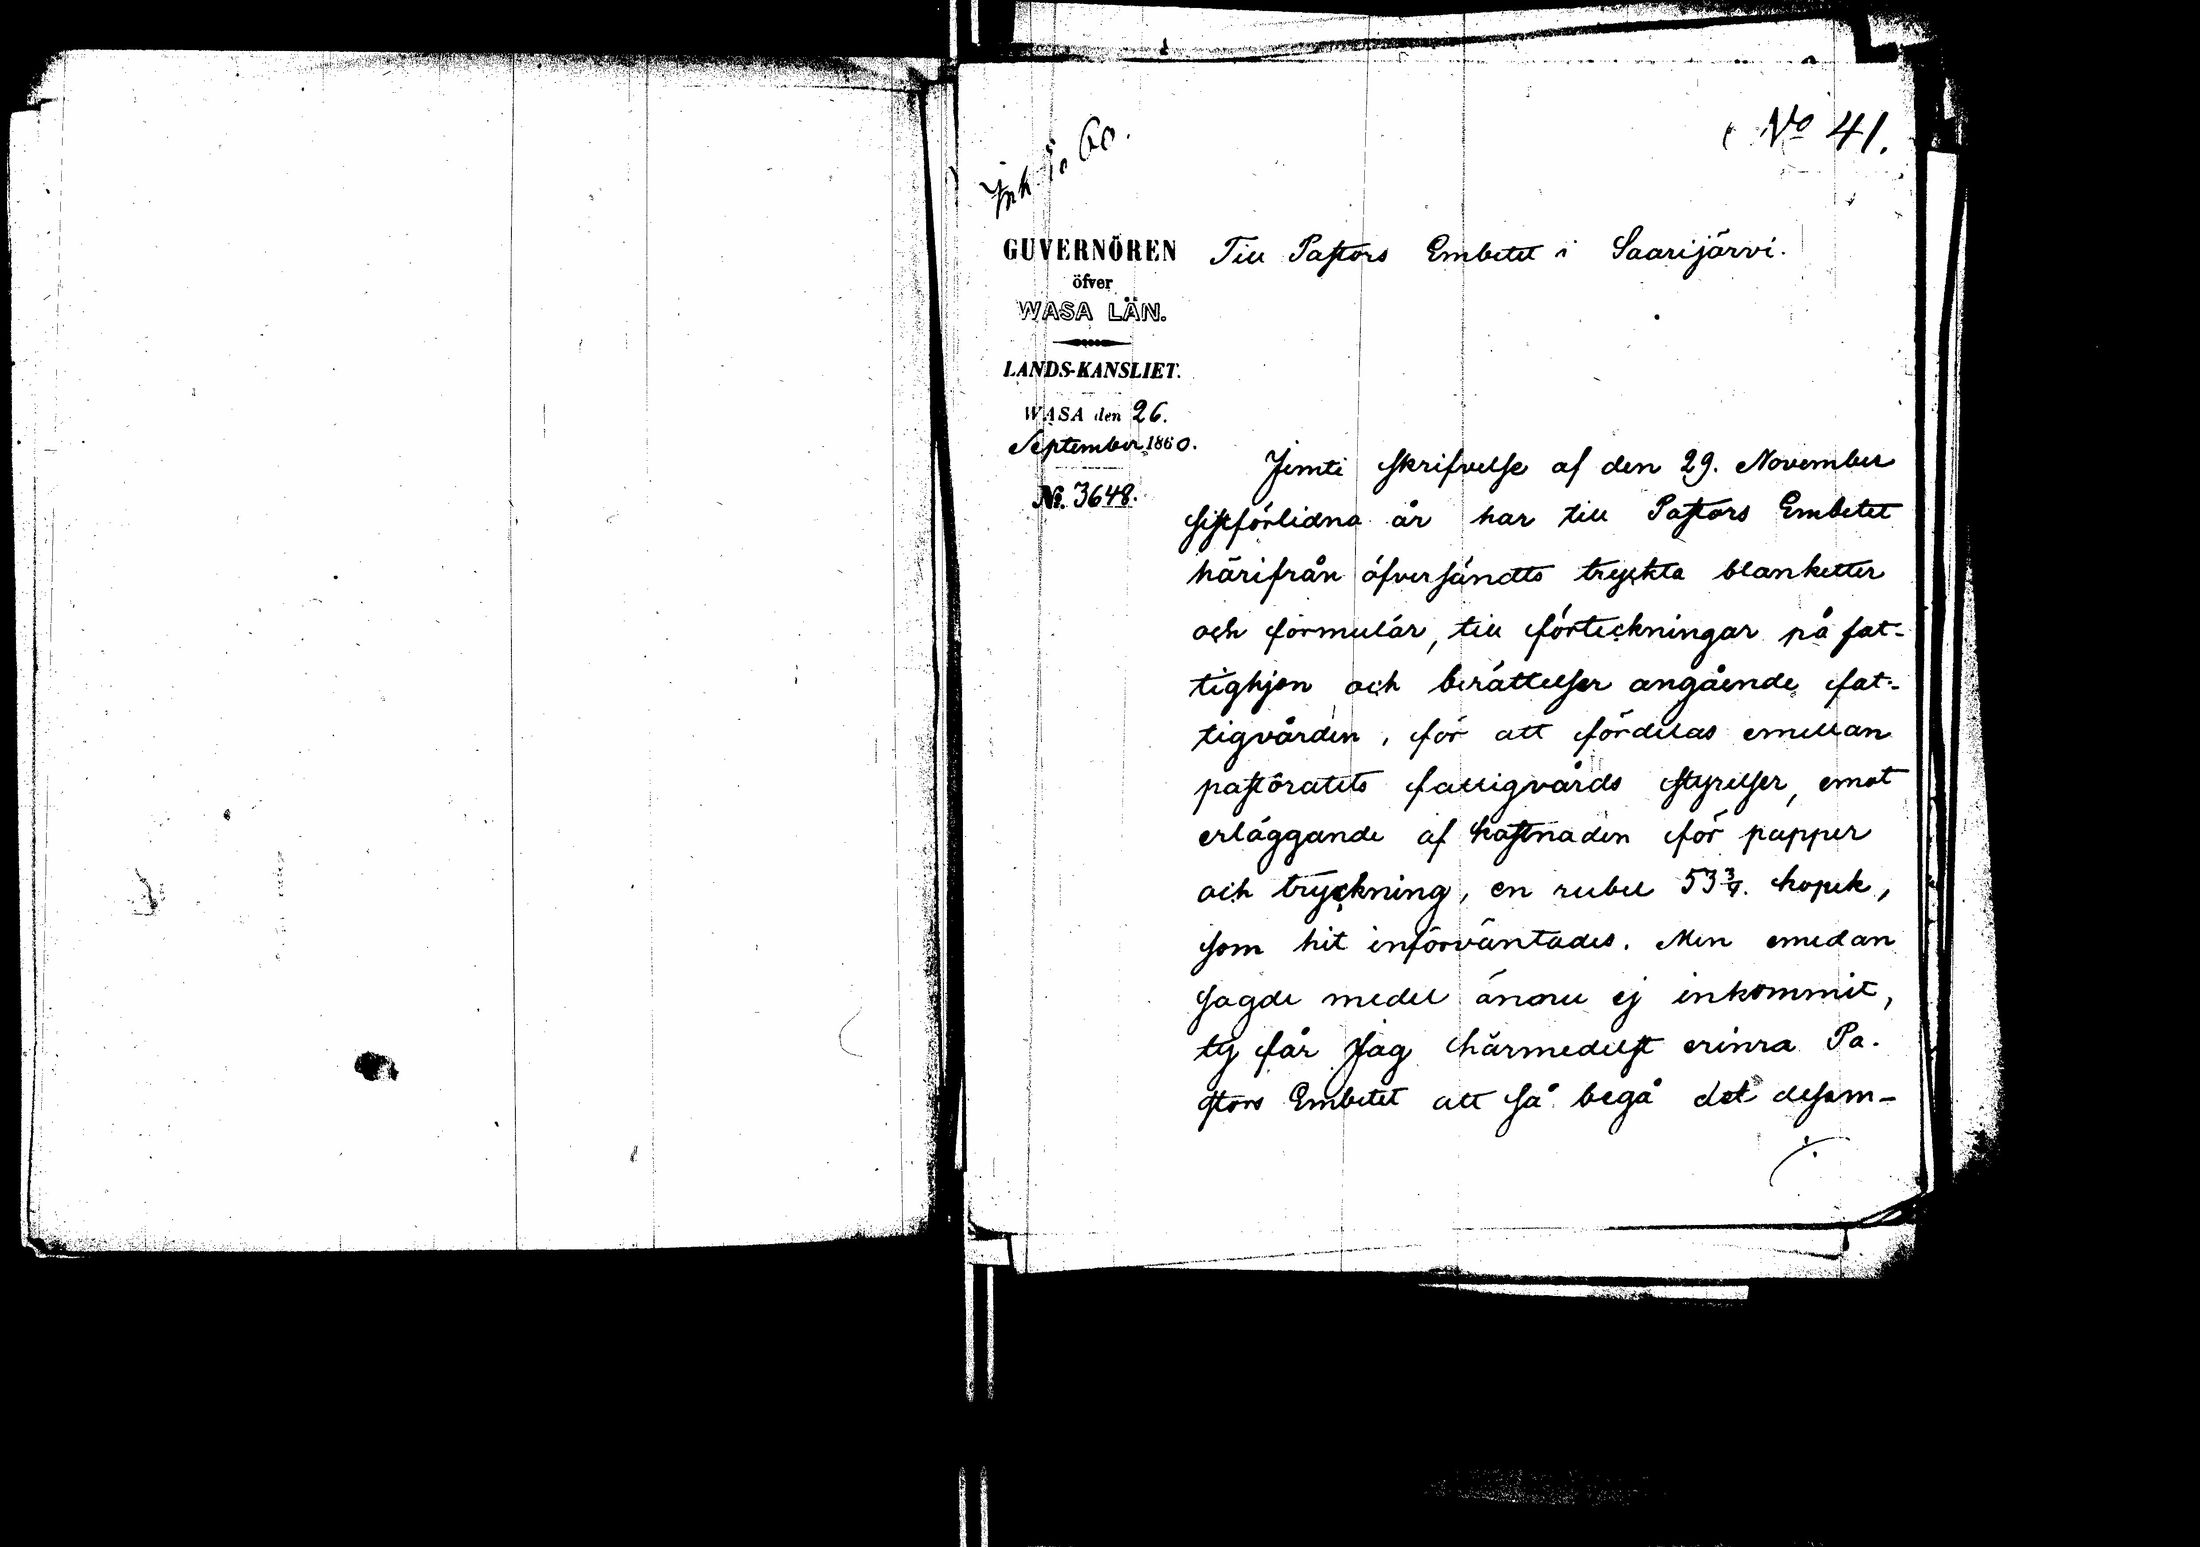 No 41.
Ink 60.
GUVERNÖREN
öfver
WASA LÄN.
LANDS-KANSLIET.
WASA den 26.
September 1860.
No. 3648.
Till Pastors Embetet i Saarijärvi.
Jemte skrifvelse af den 29. November
sistförlidna år har till Pastors Embetet
härifrån öfversändts tryckta blanketter
och formulär, till förteckningar på fat-
tighjon och berättelser angående fat-
tigvården, för att fördelas emellan
pastoratets fattigvårds styrelser, emot
erläggande af kostnaden för papper
och tryckning, en rubel 53 3/4. kopek,
som hit införväntades. Men emedan
sagde medel ännu ej inkommit,
ty får Jag härmedelst erinra Pa-
stors Embetet att så begå det desam-